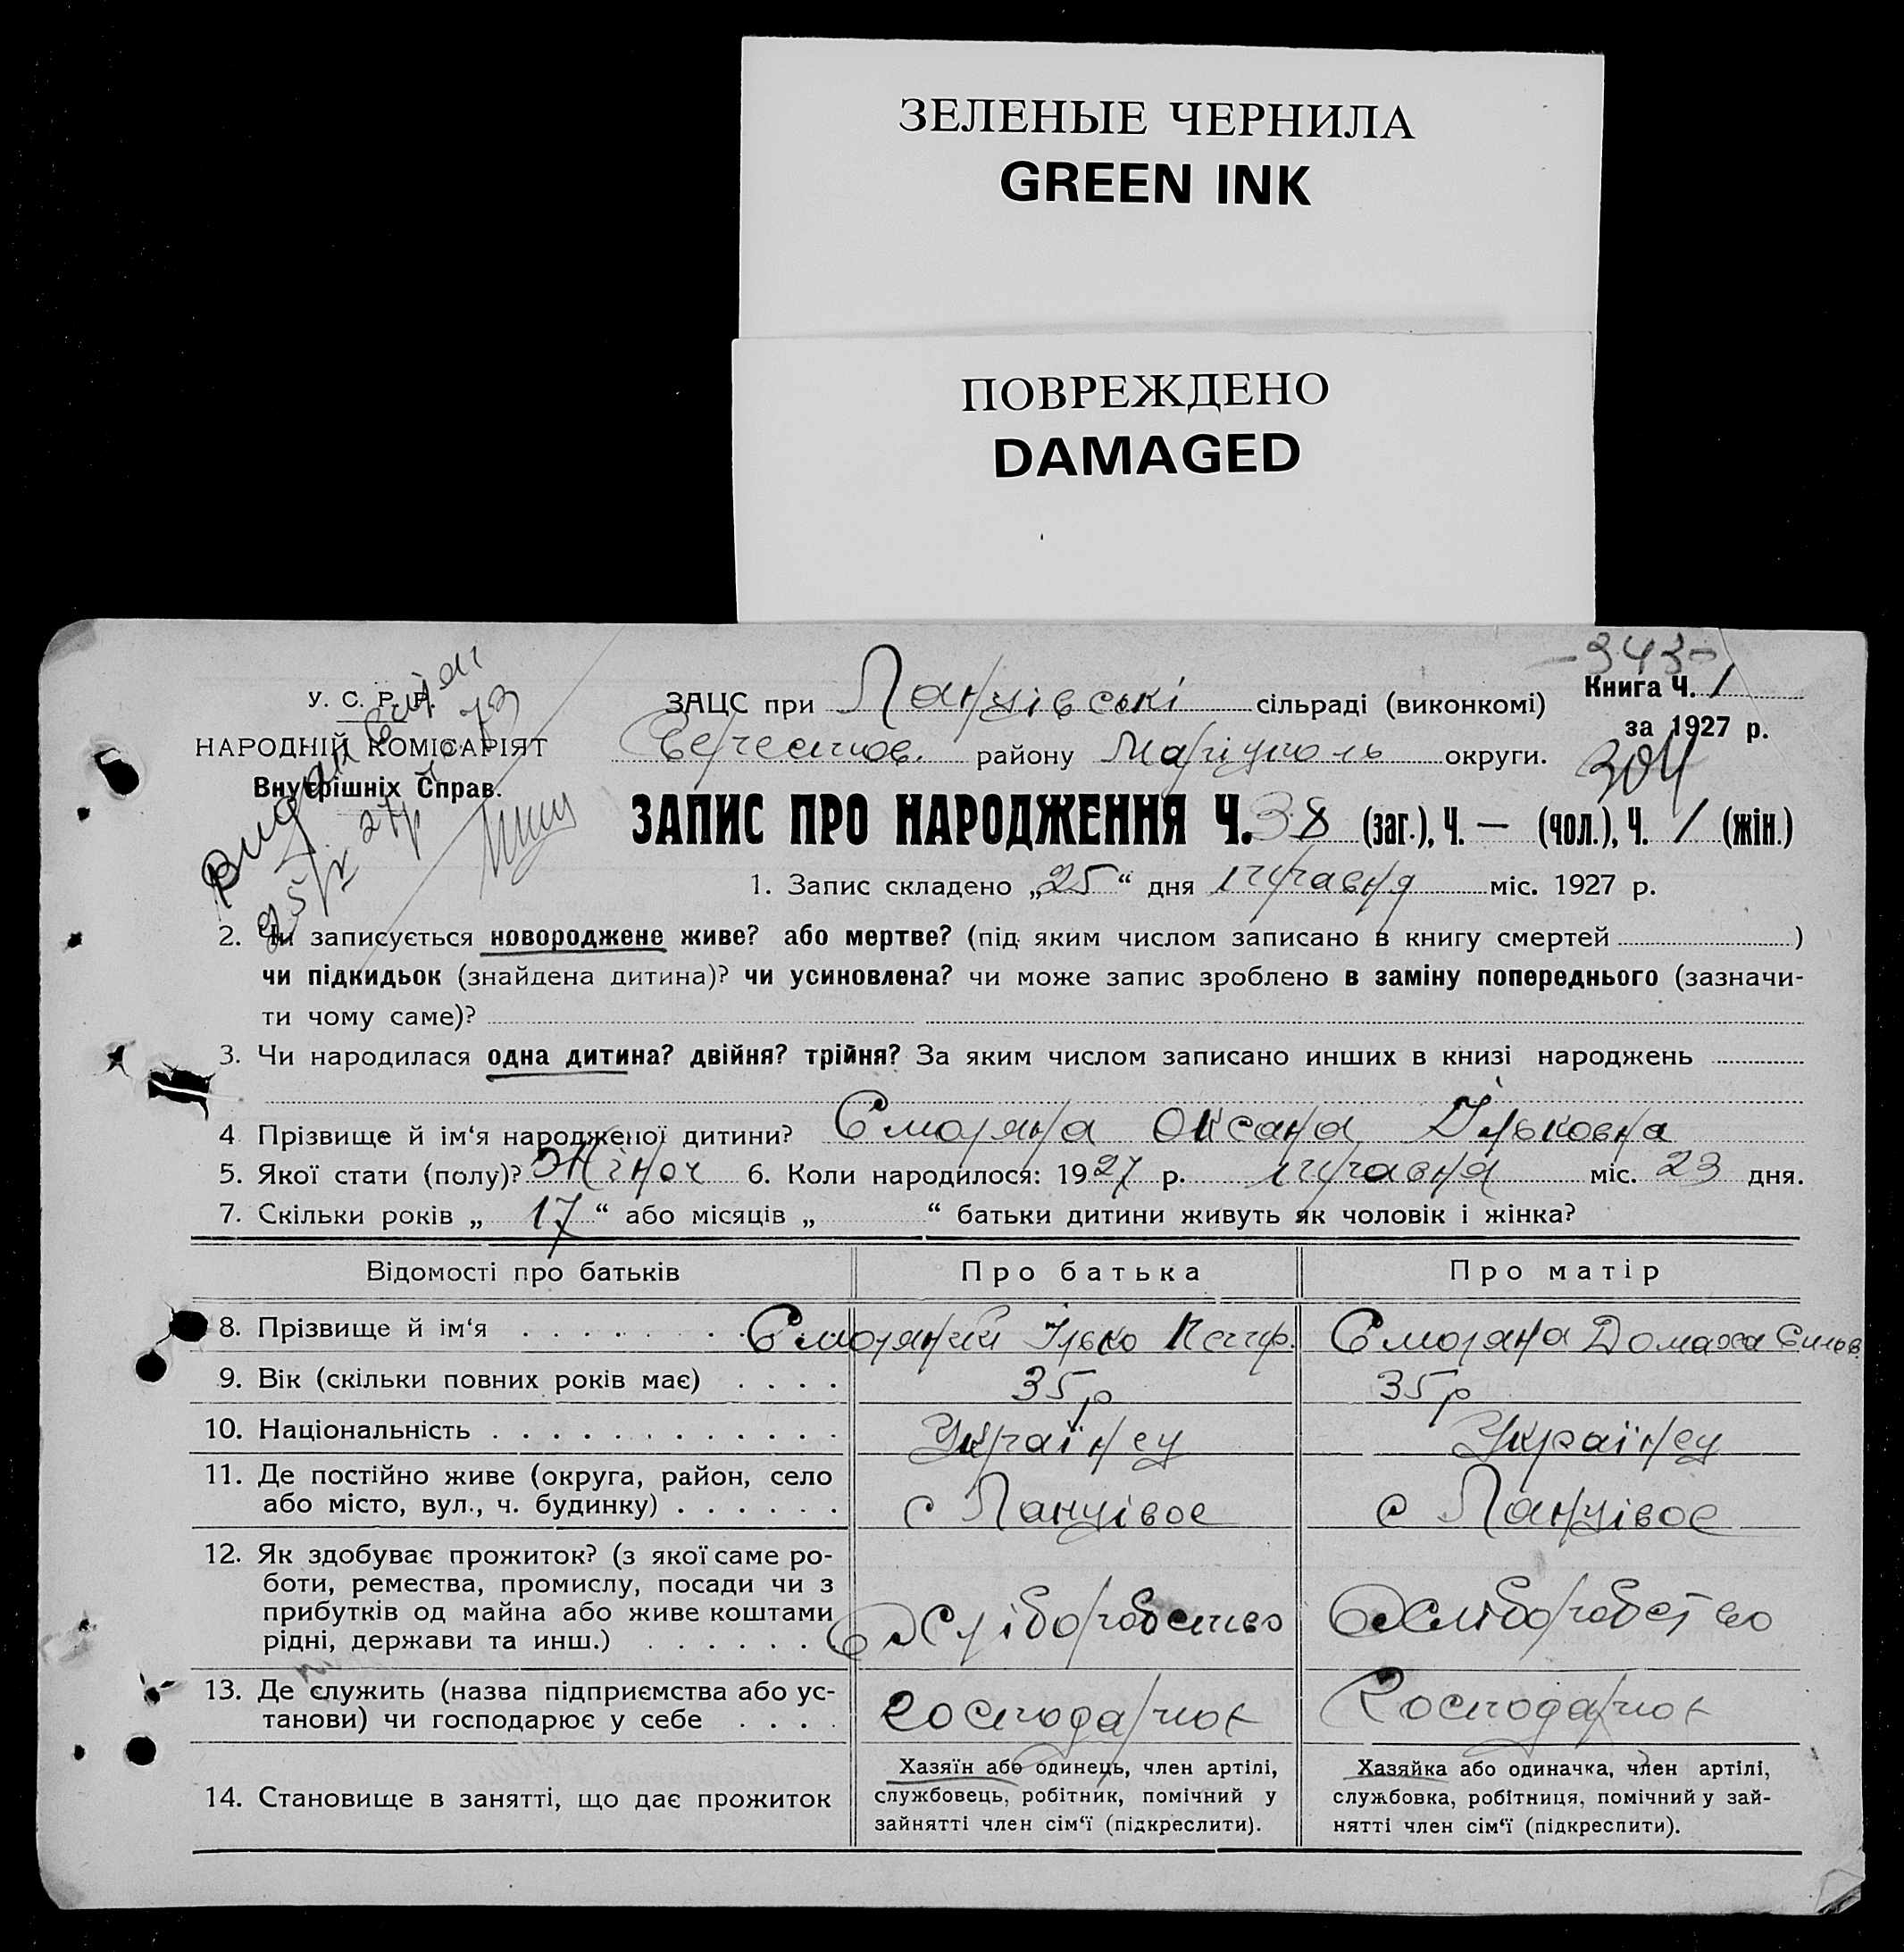 ЗЕЛЕНЫЕ ЧЕРНИЛА
GREEN INK
ПОВРЕЖДЕНО
DAMAGED
-343-
У. С. Р. Р.
НАРОДНІЙ КОМІСАРІЯТ
Внутрішніх Справ.
ЗАЦС при сільраді (виконкомі)
району Маріуполь округи.
Книга Ч. 1
за 1927 р.
304
ЗАПИС ПРО НАРОДЖЕННЯ Ч. 38 (заг.), Ч. — (чол.), Ч. 1 (жін.)
1. Запис складено „25“ дня травня міс. 1927 р.
2. Чи записується новороджене живе? або мертве? (під яким числом записано в книгу смертей )
чи підкидьок (знайдена дитина)? чи усиновлена? чи може запис зроблено в заміну попереднього (зазначи-
ти чому саме)?
3. Чи народилася одна дитина? двійня? трійня? За яким числом записано инших в книзі народжень
4 Прізвище й ім‘я народженої дитини? Смоляна Оксана Ільковна
5. Якої стати (полу)? Жіноч 6. Коли народилося: 1927 р. травня міс. 23 дня.
7. Скільки років „ 17 “ або місяців „ “ батьки дитини живуть як чоловік і жінка?
Відомості про батьків Про батька Про матір
8. Прізвище й ім‘я Смоляний Ілько Смоляна Домаха
9. Вік (скільки повних років має) 35 р 35 р
10. Національність Українец Українец
11. Де постійно живе (округа, район, село
або місто, вул., ч. будинку) с Ланцівое с Ланцівое
12. Як здобуває прожиток? (з якої саме ро-
боти, ремества, промислу, посади чи з
прибутків од майна або живе коштами
рідні, держави та инш.) Хліборобство Хліборобство
13. Де служить (назва підприємства або ус-
танови) чи господарює у себе
14. Становище в занятті, що дає прожиток
Хазяїн або одинець, член артілі,
службовець, робітник, помічний у
зайнятті член сім‘ї (підкреслити).
Хазяйка або одиначка, член артілі,
службовка, робітниця, помічний у зай-
нятті член сім‘ї (підкреслити).